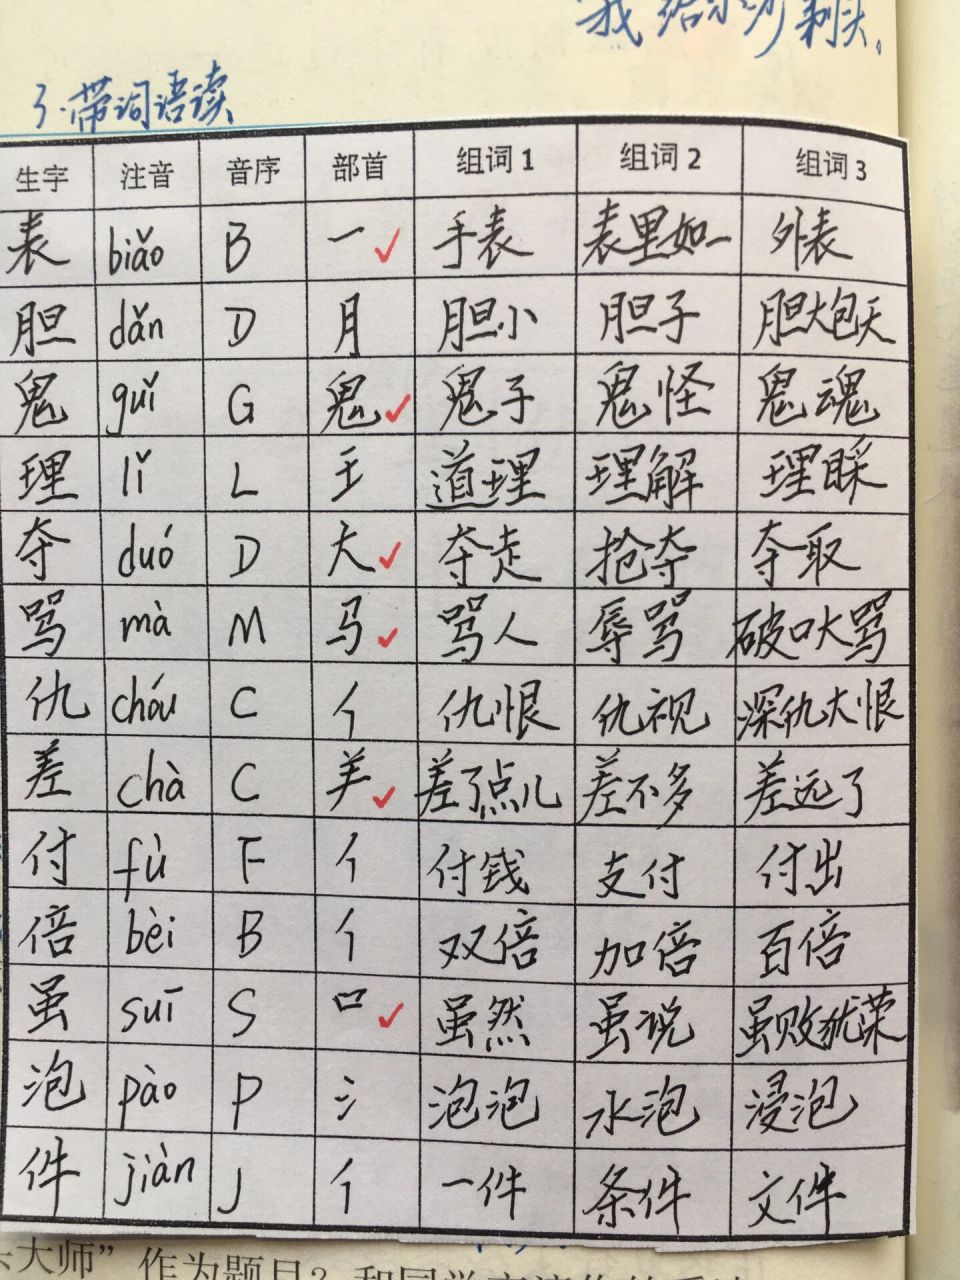 我给小沙剃头。
3.带词语读
生字 注音 音序 部首 组词1 组词2 组词3
表 biǎo B 一 手表 表里如一 外表
胆 dǎn D 月 胆小 胆子 胆大包天
鬼 guǐ G 鬼 鬼子 鬼怪 鬼魂
理 lǐ L 王 道理 理解 理睬
夺 duó D 大 夺走 抢夺 夺取
骂 mà M 马 骂人 辱骂 破口大骂
仇 chóu C 亻 仇恨 仇视 深仇大恨
差 chà C 羊 差了点儿 差不多 差远了
付 fù F 亻 付钱 支付 付出
倍 bèi B 亻 双倍 加倍 百倍
虽 suī S 口 虽然 虽说 虽败犹荣
泡 pào P 氵 泡泡 水泡 浸泡
件 jiàn J 亻 一件 条件 文件
大师”作为题目？和同学